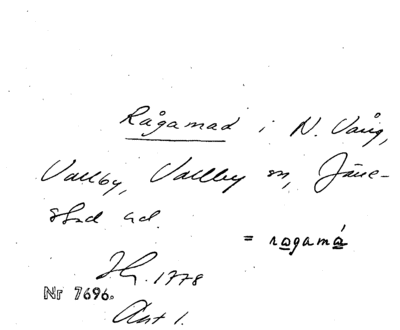 Rågamad i N. Vång,
Vallby, Vallby sn, Järre-
stad hd.
= rogamá
1778
Nr 7696.
Akt 1.